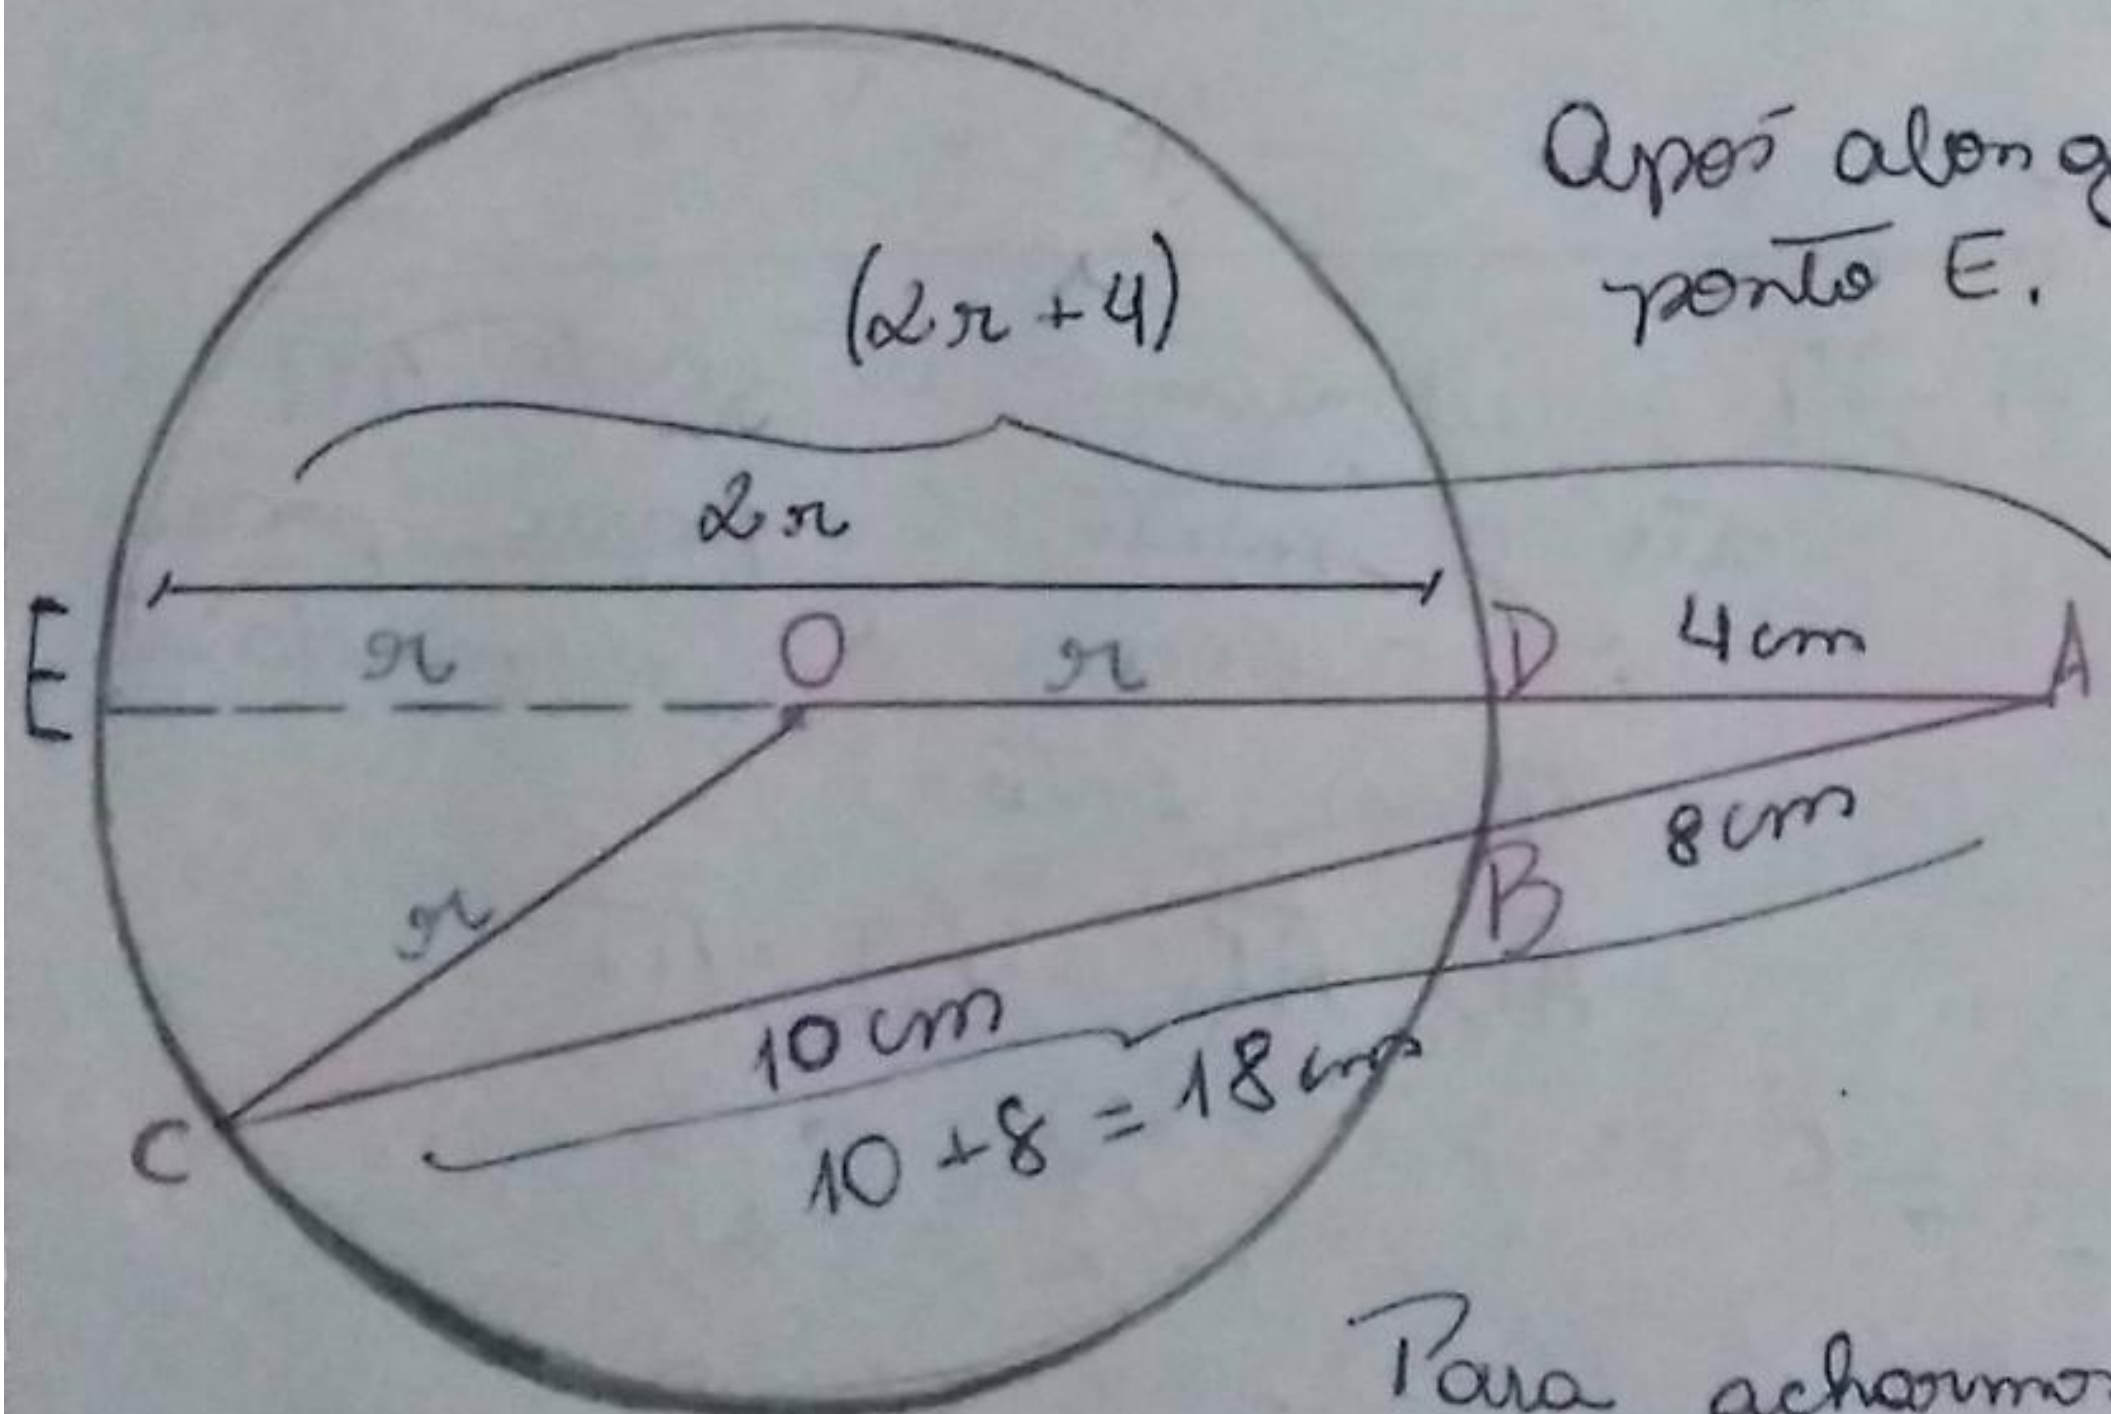 Após along
ponto E.
(2r + 4)
2r
E
r
O
r
D
4cm
A
8cm
r
B
10 cm
C
10 + 8 = 18 cm
Para acharmos